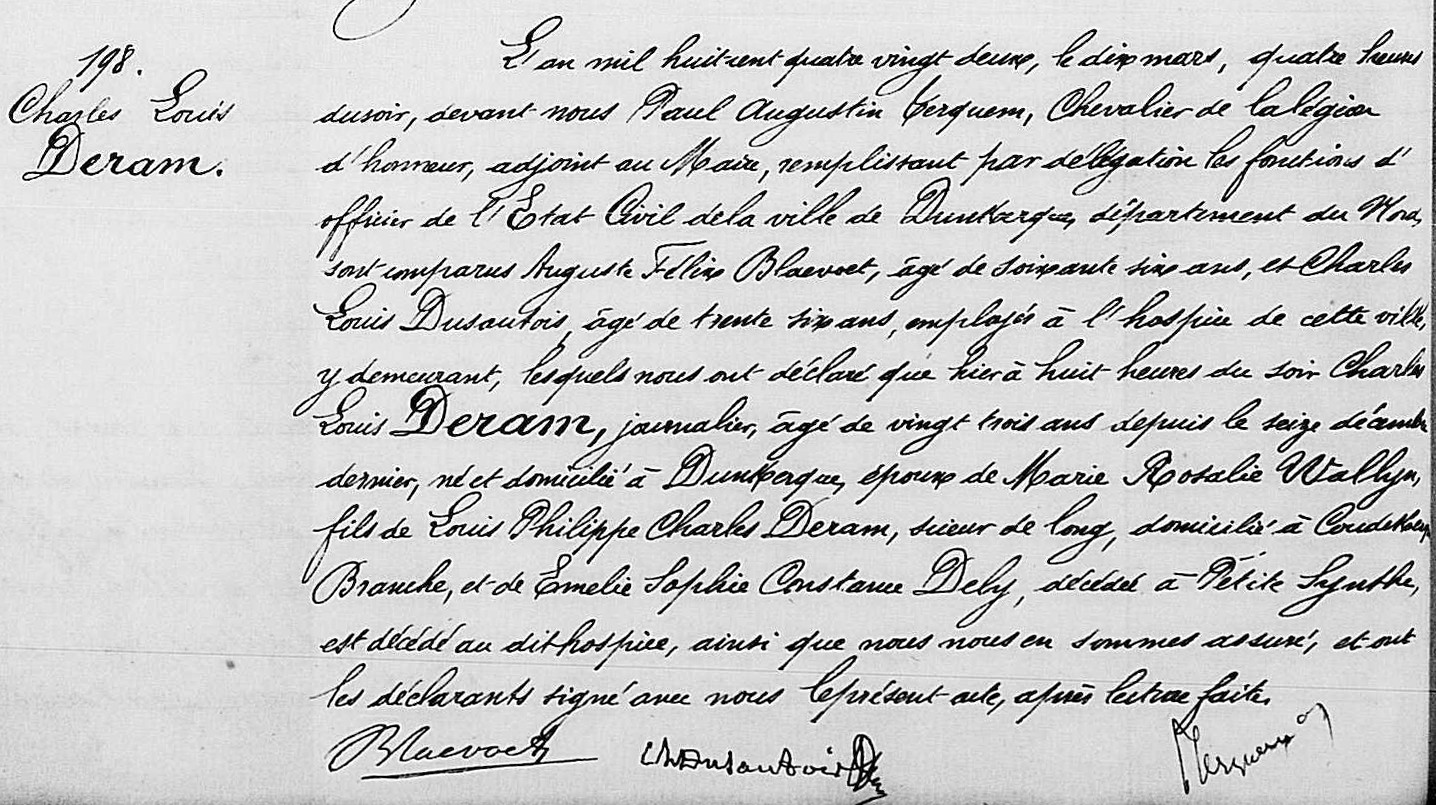 198.
Charles Louis
Deram.
L'an mil huit cent quatre vingt deux, le dix mars, quatre heures
du soir, devant nous Paul Augustin Terquem, Chevalier de la légion
d'honneur, adjoint au Maire, remplissant par délégation les fonctions d'
officier de l'Etat Civil de la ville de Dunkerque, département du Nord,
sont comparus Auguste Félix Blaevoet, âgé de soixante six ans, et Charles
Louis Dusautois, âgé de trente six ans, employés à l'hospice de cette ville,
y demeurant, lesquels nous ont déclaré que hier à huit heures du soir Charles
Louis Deram, journalier, âgé de vingt trois ans depuis le seize décembre
dernier, né et domicilié à Dunkerque, époux de Marie Rosalie Wallyn,
fils de Louis Philippe Charles Deram, scieur de long, domicilié à Coudekerque
Branche, et de Emelie Sophie Constance Dely, décédée à Petite Synthe,
est décédé au dit hospice, ainsi que nous nous en sommes assuré, et ont
les déclarants signé avec nous le présent acte, après lecture faite.
Blaevoet Ch Dusautois Terquem